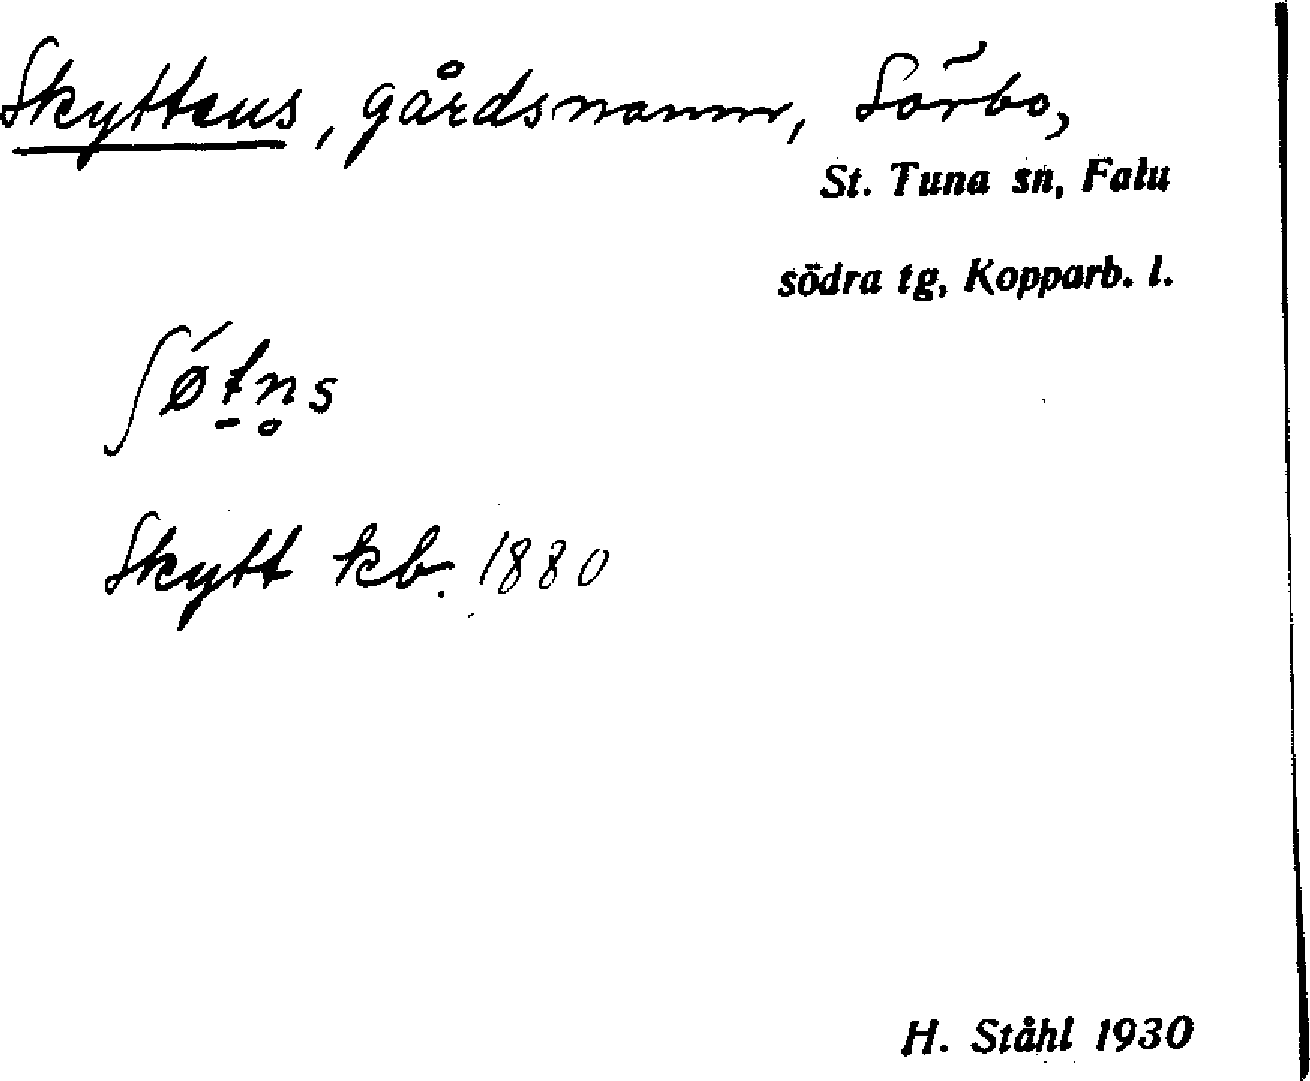 Skyttens, gårdsnamn, Sörbo,
St. Tuna sn, Falu
södra tg, Kopparb. l.
ʃǿt̠n̥s
Skytt kb. 1880
H. Ståhl 1930